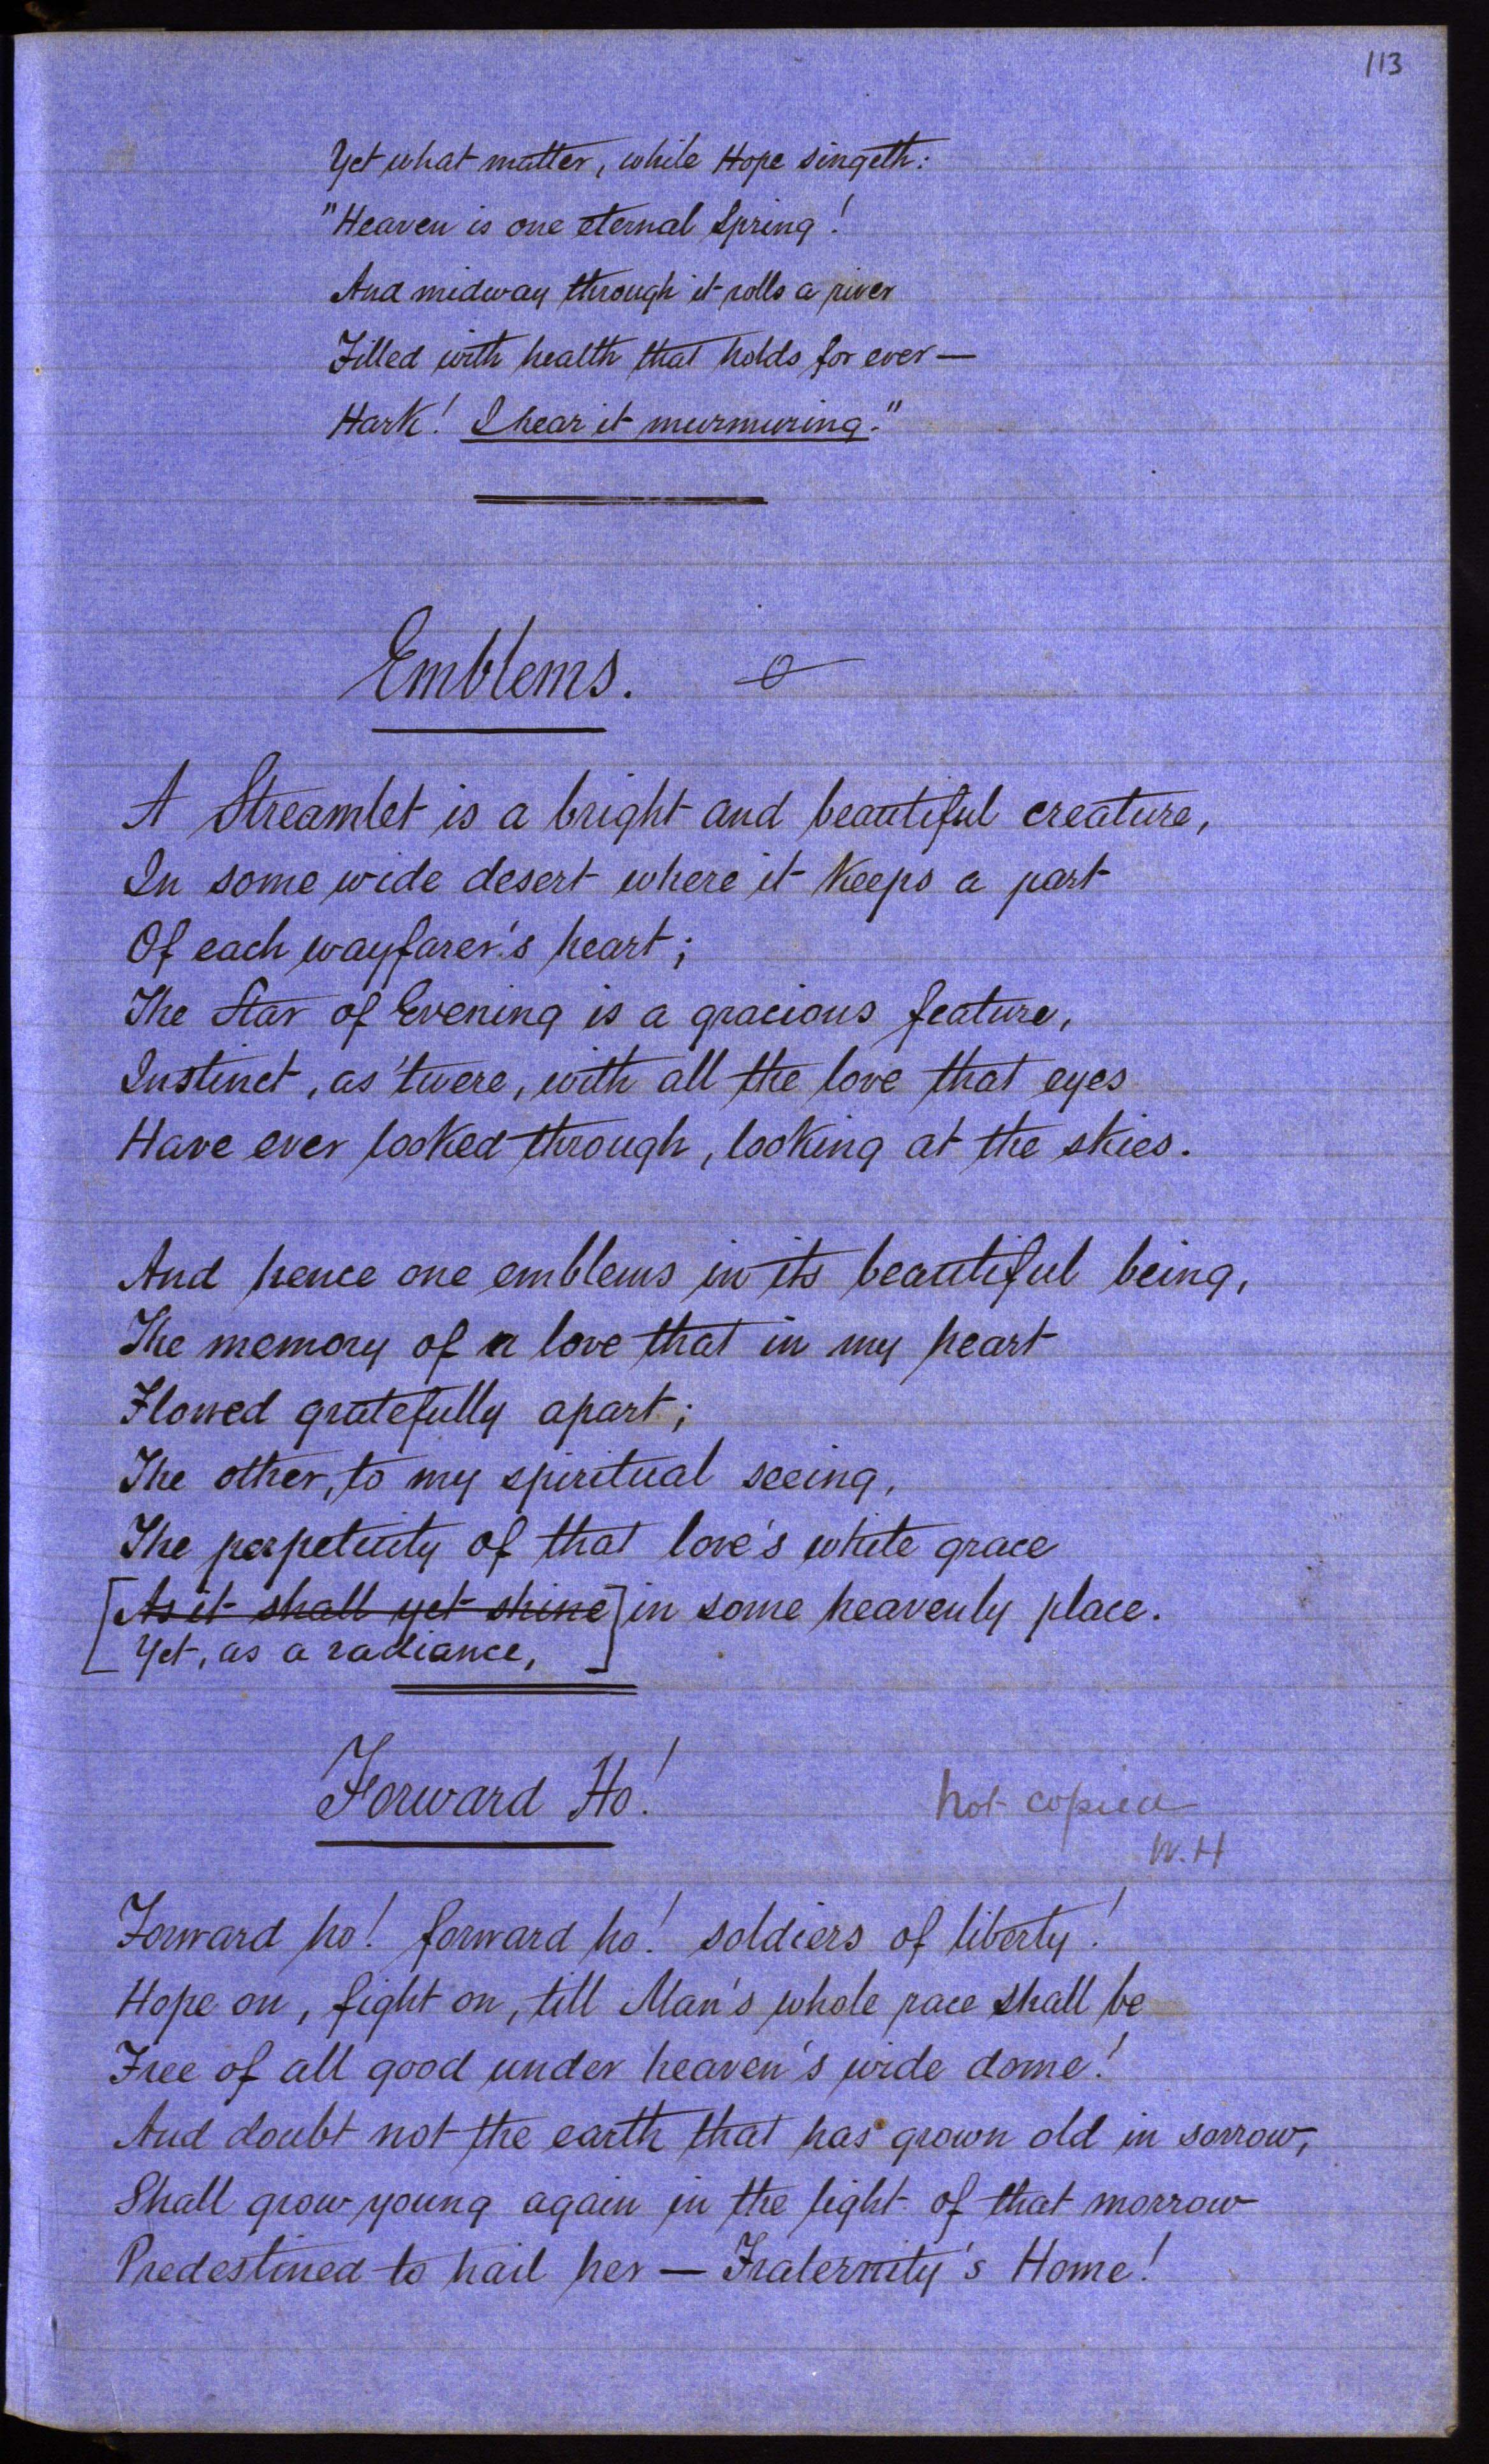 113
Yet what matter, while Hope singeth:
"Heaven is one eternal Spring!
And midway through it rolls a river
Filled with health that holds for ever—
Hark! I hear it murmuring."
Emblems.
A Streamlet is a bright and beautiful creature,
In some wide desert where it keeps a part
Of each wayfarer's heart;
The Star of Evening is a gracious feature,
Instinct, as 'twere, with all the love that eyes
Have ever looked through, looking at the skies.
And hence one emblems in its beautiful being,
The memory of a love that in my heart
Flowed gratefully apart;
The other, to my spiritual seeing,
The perpetuity of that love's white grace
[As it shall yet shine] in some heavenly place.
[Yet, as a radiance, ]
Forward Ho!
not copied
W. H
Forward ho! forward ho! soldiers of liberty!
Hope on, fight on, till Man's whole race shall be
Free of all good under heaven's wide dome!
And doubt not the earth that has grown old in sorrow,
Shall grow young again in the light of that morrow
Predestined to hail her — Fraternity's Home!